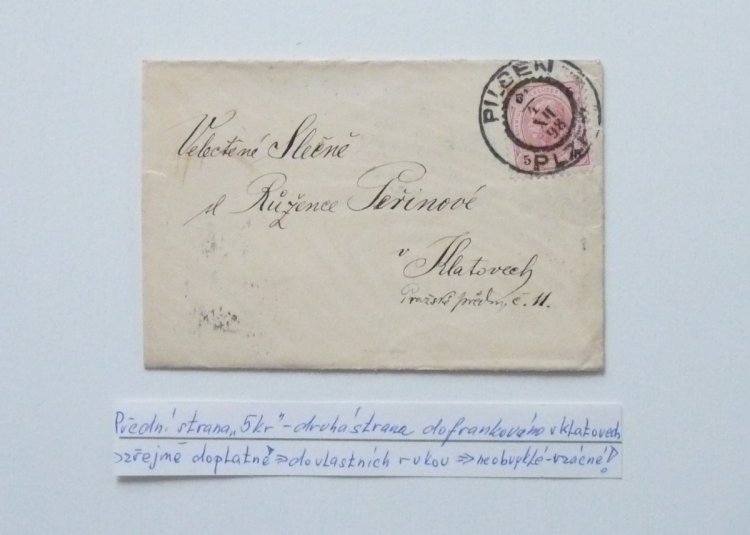 PILSEN
1
XII
98
5 PLZEŇ
Velectěné Slečně
sl Růžence Peřinové
v Klatovech
Pražské předm. č. 11.
Přední strana „5kr" - druhá strana dofrankového v Klatovech
zřejmě doplatné ⇒ do vlastních rukou ⇒ neobvyklé - vzácné!